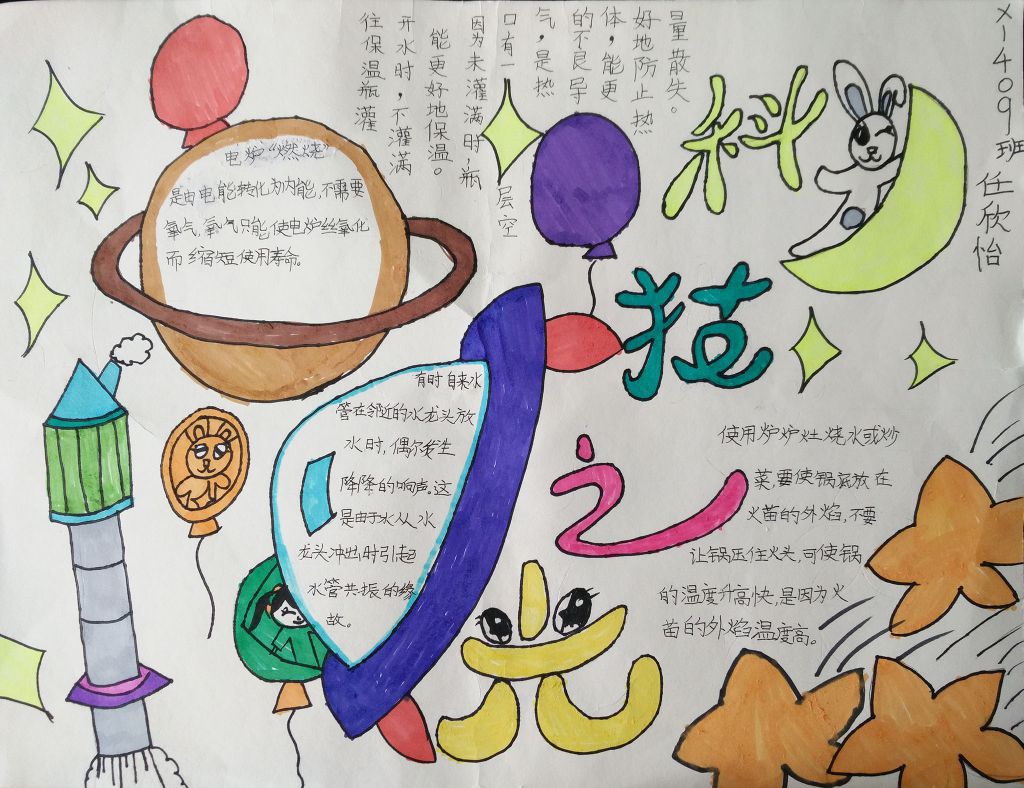 往保温瓶灌
开水时，不灌满
能更好地保温。
因为未灌满时，瓶
口有一层空
气，是热
的不良导
体，能更
好地防止热
量散失。
X-1409班 任欣怡
科技之光
电炉“燃烧”
是由电能转化为内能，不需要
氧气，氧气只能使电炉丝氧化
而缩短使用寿命。
有时自来水
管在邻近的水龙头放
水时，偶尔发生
降降的响声。这
是由于水从水
龙头冲出时引起
水管共振的缘
故。
使用炉炉灶烧水或炒
菜，要使锅底放在
火苗的外焰，不要
让锅压住火头，可使锅
的温度升高快，是因为火
苗的外焰温度高。